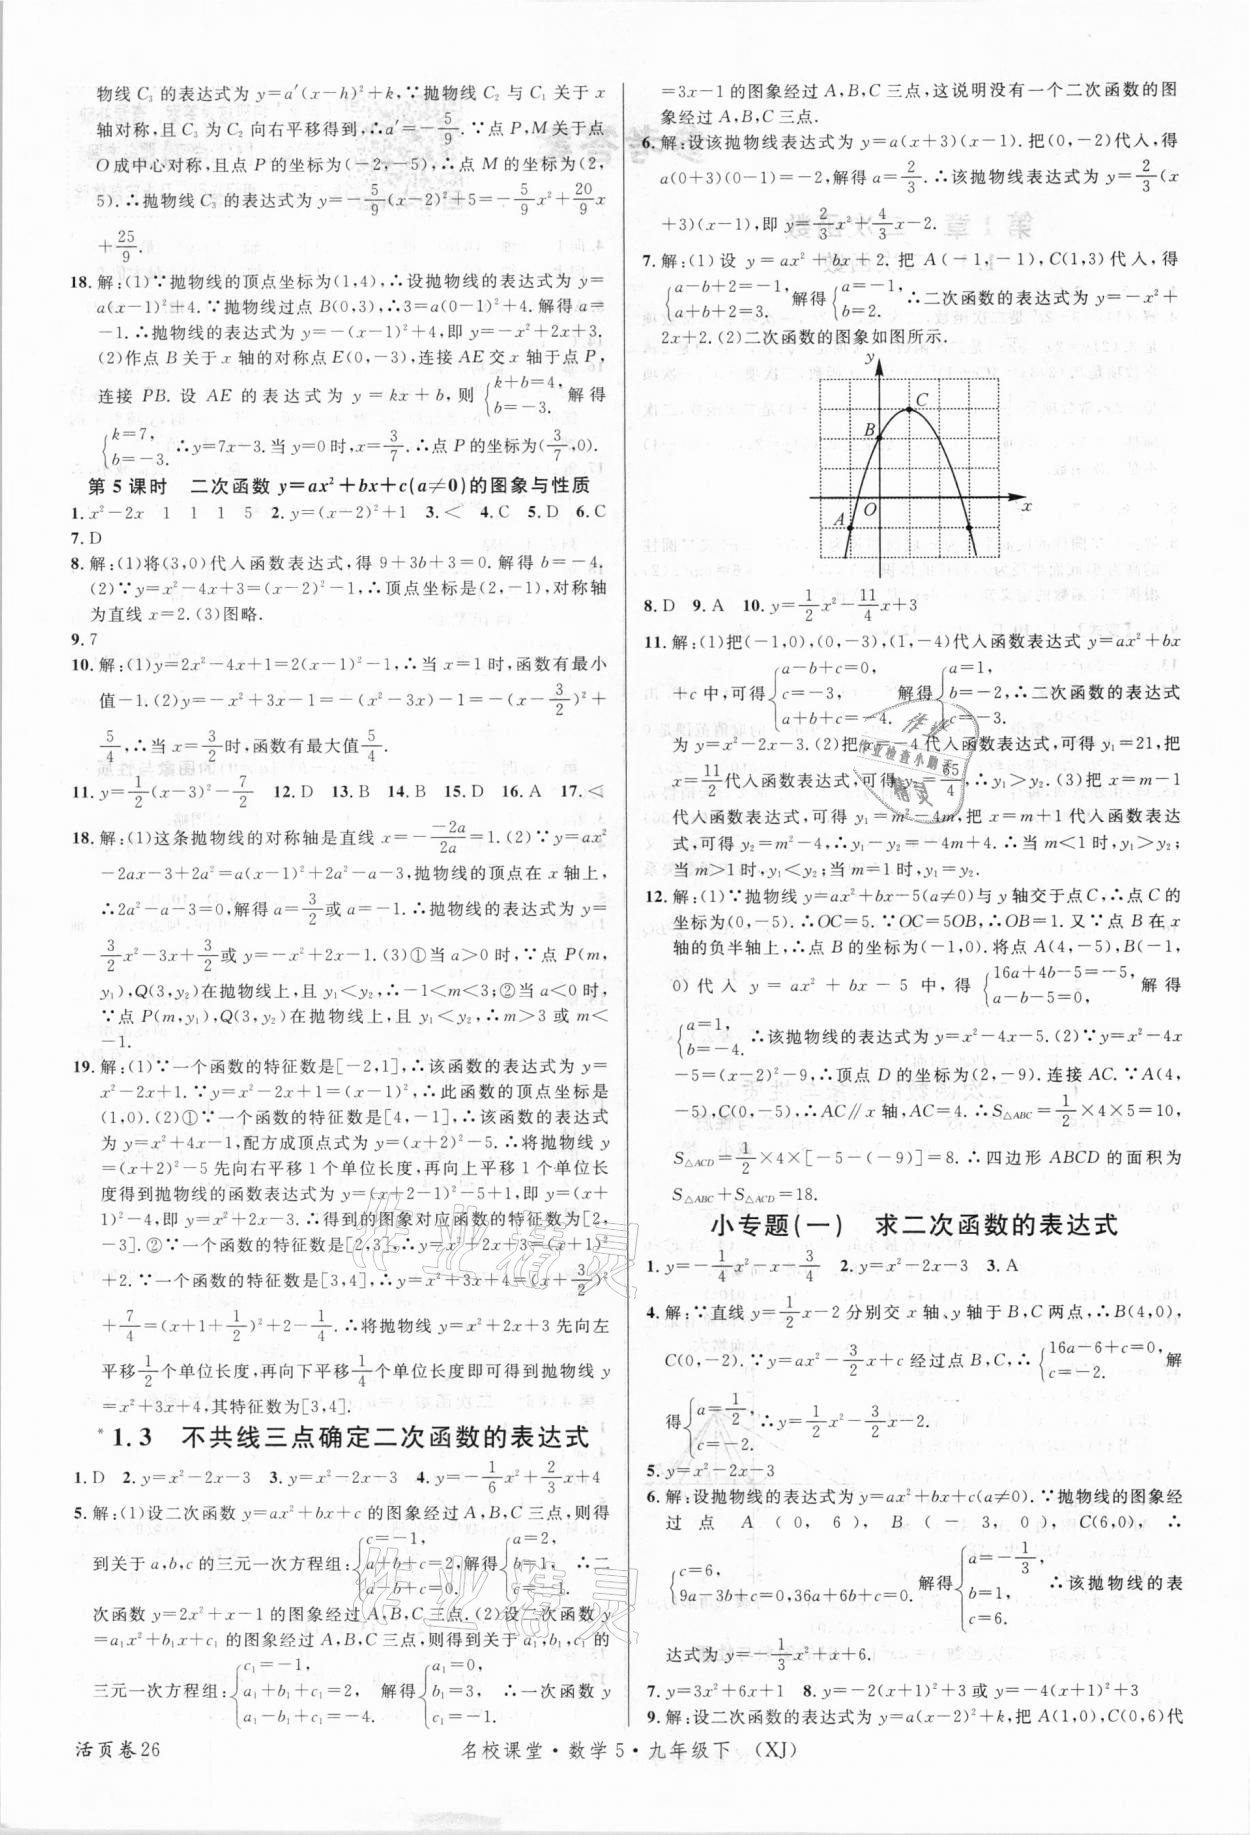 物线 C₃ 的表达式为 y=a′(x-h)²+k,∵抛物线 C₂ 与 C₁ 关于 x
轴对称,且 C₃ 为 C₂ 向右平移得到,∴a′=-5/9.∵点 P,M 关于点
O 成中心对称,且点 P 的坐标为(-2,-5),∴点 M 的坐标为(2,
5).∴抛物线 C₃ 的表达式为 y=-5/9(x-2)²+5=-5/9x²+20/9x
+25/9.
18.解:(1)∵抛物线的顶点坐标为(1,4),∴设抛物线的表达式为 y=
a(x-1)²+4.∵抛物线过点 B(0,3),∴3=a(0-1)²+4.解得 a=
-1.∴抛物线的表达式为 y=-(x-1)²+4,即 y=-x²+2x+3.
(2)作点 B 关于 x 轴的对称点 E(0,-3),连接 AE 交 x 轴于点 P,
连接 PB. 设 AE 的表达式为 y=kx+b,则 {k+b=4, b=-3. 解得
{k=7, b=-3. ∴y=7x-3.当 y=0 时,x=3/7.∴点 P 的坐标为(3/7,0).
第 5 课时 二次函数 y=ax²+bx+c(a≠0)的图象与性质
1.x²-2x 1 1 1 5 2.y=(x-2)²+1 3.< 4.C 5.D 6.C
7.D
8.解:(1)将(3,0)代入函数表达式,得 9+3b+3=0.解得 b=-4.
(2)∵y=x²-4x+3=(x-2)²-1,∴顶点坐标是(2,-1),对称轴
为直线 x=2.(3)图略.
9.7
10.解:(1)y=2x²-4x+1=2(x-1)²-1,∴当 x=1 时,函数有最小
值-1.(2)y=-x²+3x-1=-(x²-3x)-1=-(x-3/2)²+
5/4,∴当 x=3/2时,函数有最大值5/4.
11.y=1/2(x-3)²-7/2 12.D 13.B 14.B 15.D 16.A 17.<
18.解:(1)这条抛物线的对称轴是直线 x=-(-2a)/2a=1.(2)∵y=ax²
-2ax-3+2a²=a(x-1)²+2a²-a-3,抛物线的顶点在 x 轴上,
∴2a²-a-3=0,解得 a=3/2或 a=-1.∴抛物线的表达式为 y=
3/2x²-3x+3/2或 y=-x²+2x-1.(3)①当 a>0 时,∵点 P(m,
y₁),Q(3,y₂)在抛物线上,且 y₁<y₂,∴-1<m<3;②当 a<0 时,
∵点 P(m,y₁),Q(3,y₂)在抛物线上,且 y₁<y₂,∴m>3 或 m<
-1.
19.解:(1)∵一个函数的特征数是[-2,1],∴该函数的表达式为 y=
x²-2x+1.∵y=x²-2x+1=(x-1)²,∴此函数的顶点坐标是
(1,0).(2)①∵一个函数的特征数是[4,-1],∴该函数的表达式
为 y=x²+4x-1,配方成顶点式为 y=(x+2)²-5.∴将抛物线 y
=(x+2)²-5 先向右平移 1 个单位长度,再向上平移 1 个单位长
度得到抛物线的函数表达式为 y=(x+2-1)²-5+1,即 y=(x+
1)²-4,即 y=x²+2x-3.∴得到的图象对应函数的特征数为[2,
-3].②∵一个函数的特征数是[2,3],∴y=x²+2x+3=(x+1)²
+2.∵一个函数的特征数是[3,4],∴y=x²+3x+4=(x+3/2)²
+7/4=(x+1+1/2)²+2-1/4.∴将抛物线 y=x²+2x+3 先向左
平移1/2个单位长度,再向下平移1/4个单位长度即可得到抛物线 y
=x²+3x+4,其特征数为[3,4].
*1.3 不共线三点确定二次函数的表达式
1.D 2.y=x²-2x-3 3.y=x²-2x-3 4.y=-1/6x²+2/3x+4
5.解:(1)设二次函数 y=ax²+bx+c 的图象经过 A,B,C 三点,则得
到关于 a,b,c 的三元一次方程组:{c=-1, a+b+c=2, a-b+c=0. 解得{a=2, b=1, c=-1. ∴二
次函数 y=2x²+x-1 的图象经过 A,B,C 三点.(2)设二次函数 y
=a₁x²+b₁x+c₁ 的图象经过 A,B,C 三点,则得到关于 a₁,b₁,c₁ 的
三元一次方程组:{c₁=-1, a₁+b₁+c₁=2, a₁-b₁+c₁=-4. 解得{a₁=0, b₁=3, c₁=-1. ∴一次函数 y
=3x-1 的图象经过 A,B,C 三点,这说明没有一个二次函数的图
象经过 A,B,C 三点.
6.解:设该抛物线表达式为 y=a(x+3)(x-1).把(0,-2)代入,得
a(0+3)(0-1)=-2,解得 a=2/3.∴该抛物线表达式为 y=2/3(x
+3)(x-1),即 y=2/3x²+4/3x-2.
7.解:(1)设 y=ax²+bx+2.把 A(-1,-1),C(1,3)代入,得
{a-b+2=-1, a+b+2=3. 解得{a=-1, b=2. ∴二次函数的表达式为 y=-x²+
2x+2.(2)二次函数的图象如图所示.
y
C
B
O
x
A
8.D 9.A 10.y=1/2x²-11/4x+3
11.解:(1)把(-1,0),(0,-3),(1,-4)代入函数表达式 y=ax²+bx
+c 中,可得{a-b+c=0, c=-3, a+b+c=-4. 解得{a=1, b=-2, c=-3. ∴二次函数的表达式
为 y=x²-2x-3.(2)把 x=-4 代入函数表达式,可得 y₁=21,把
x=11/2代入函数表达式,可得 y₂=65/4,∴y₁>y₂.(3)把 x=m
代入函数表达式,可得 y₁=m²-2m-3,把 x=m+1 代入函数表达
式,可得 y₂=m²-4,∴y₁-y₂=-2m+1.
12.解:(1)∵抛物线 y=ax²+bx-5(a≠0)与 y 轴交于点 C,∴点 C 的
坐标为(0,-5).∴OC=5.∵OC=5OB,∴OB=1.又∵点 B 在 x
轴的负半轴上,∴点 B 的坐标为(-1,0).将点 A(4,-5),B(-1,
0)代入 y=ax²+bx-5 中,得{16a+4b-5=-5, a-b-5=0, 解得
{a=1, b=-4. ∴该抛物线的表达式为 y=x²-4x-5.(2)∵y=x²-4x
-5=(x-2)²-9,∴顶点 D 的坐标为(2,-9).连接 AC.∵A(4,
-5),C(0,-5),∴AC∥x 轴,AC=4.∴S△ABC=1/2×4×5=10,
S△ACD=1/2×4×[-5-(-9)]=8.∴四边形 ABCD 的面积为
S△ABC+S△ACD=18.
小专题(一) 求二次函数的表达式
1.y=-1/4x²-x-3/4 2.y=x²-2x-3 3.A
4.解:∵直线 y=1/2x-2 分别交 x 轴、y 轴于 B,C 两点,∴B(4,0),
C(0,-2).∵y=ax²-3/2x+c 经过点 B,C,∴{16a-6+c=0, c=-2. 解
得{a=1/2, c=-2. ∴y=1/2x²-3/2x-2.
5.y=x²-2x-3
6.解:设抛物线的表达式为 y=ax²+bx+c(a≠0).∵抛物线的图象经
过点 A(0,6),B(-3,0),C(6,0),∴
{c=6, 9a-3b+c=0,36a+6b+c=0. 解得{a=-1/3, b=1, c=6. ∴该抛物线的表
达式为 y=-1/3x²+x+6.
7.y=3x²+6x+1 8.y=-2(x+1)²+3 或 y=-4(x+1)²+3
9.解:设二次函数的表达式为 y=a(x-2)²+k.把 B(1,0),C(0,6)代
活页卷 26
名校课堂·数学 5·九年级下 (XJ)
作业精灵
作业检查小助手